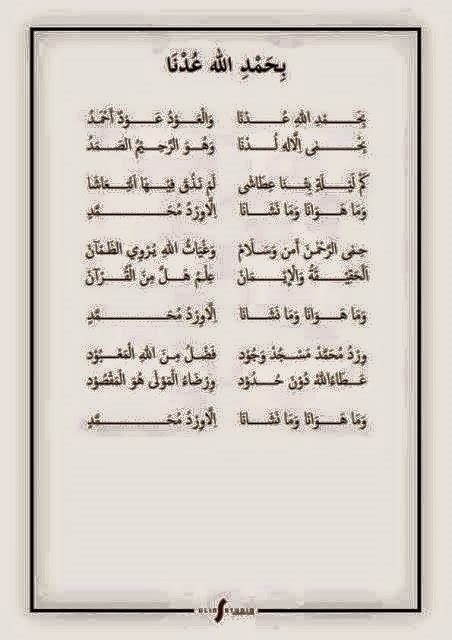 بِحَمْدِ الله عُدْنَا
بِحَمْدِ اللهِ عُدْنَا وَالْعَوْدُ عَوْدٌ أَحْمَدُ
بِحْمَى الْاِلهِ لُذْنَا وَهُوَ الرَّحِيمُ الصَّمَدُ
كَمْ لَيْلَةٍ بِتْنَا عِطَاشَى لَمْ نَذُقْ فِيْهَا انْتِعَاشَا
وَمَا هَوَانَا وَمَا نَشَانَا اِلَّاوِرْدُ مُحَمَّدٍ
حِمَى الرَّحْمٰنِ أَمن وَسَلَامْ وَغَيَاثُ اللهِ يُرْوِي الظَّمْآنْ
الْحَقِيقَةُ وَالْإِيْمَانْ عِلْمٌ هَلَّ مِنَ الْقُرْآنْ
وَمَا هَوَانَا وَمَا نَشَانَا اِلَّاوِرْدُ مُحَمَّدٍ
وِرْدُ مُحَمَّدْ مَسْجُدْ وَجُود فَضْلٌ مِنَ اللهِ الْمَعْبُوْد
عَطَاءُاللهْ دُوْنَ حُدُوْد وَرِضَاءُ الْمَوْلَى هُوَ الْمَقْصُوْد
وَمَا هَوَانَا وَمَا نَشَانَا اِلَّاوِرْدُ مُحَمَّدٍ
STUDIO